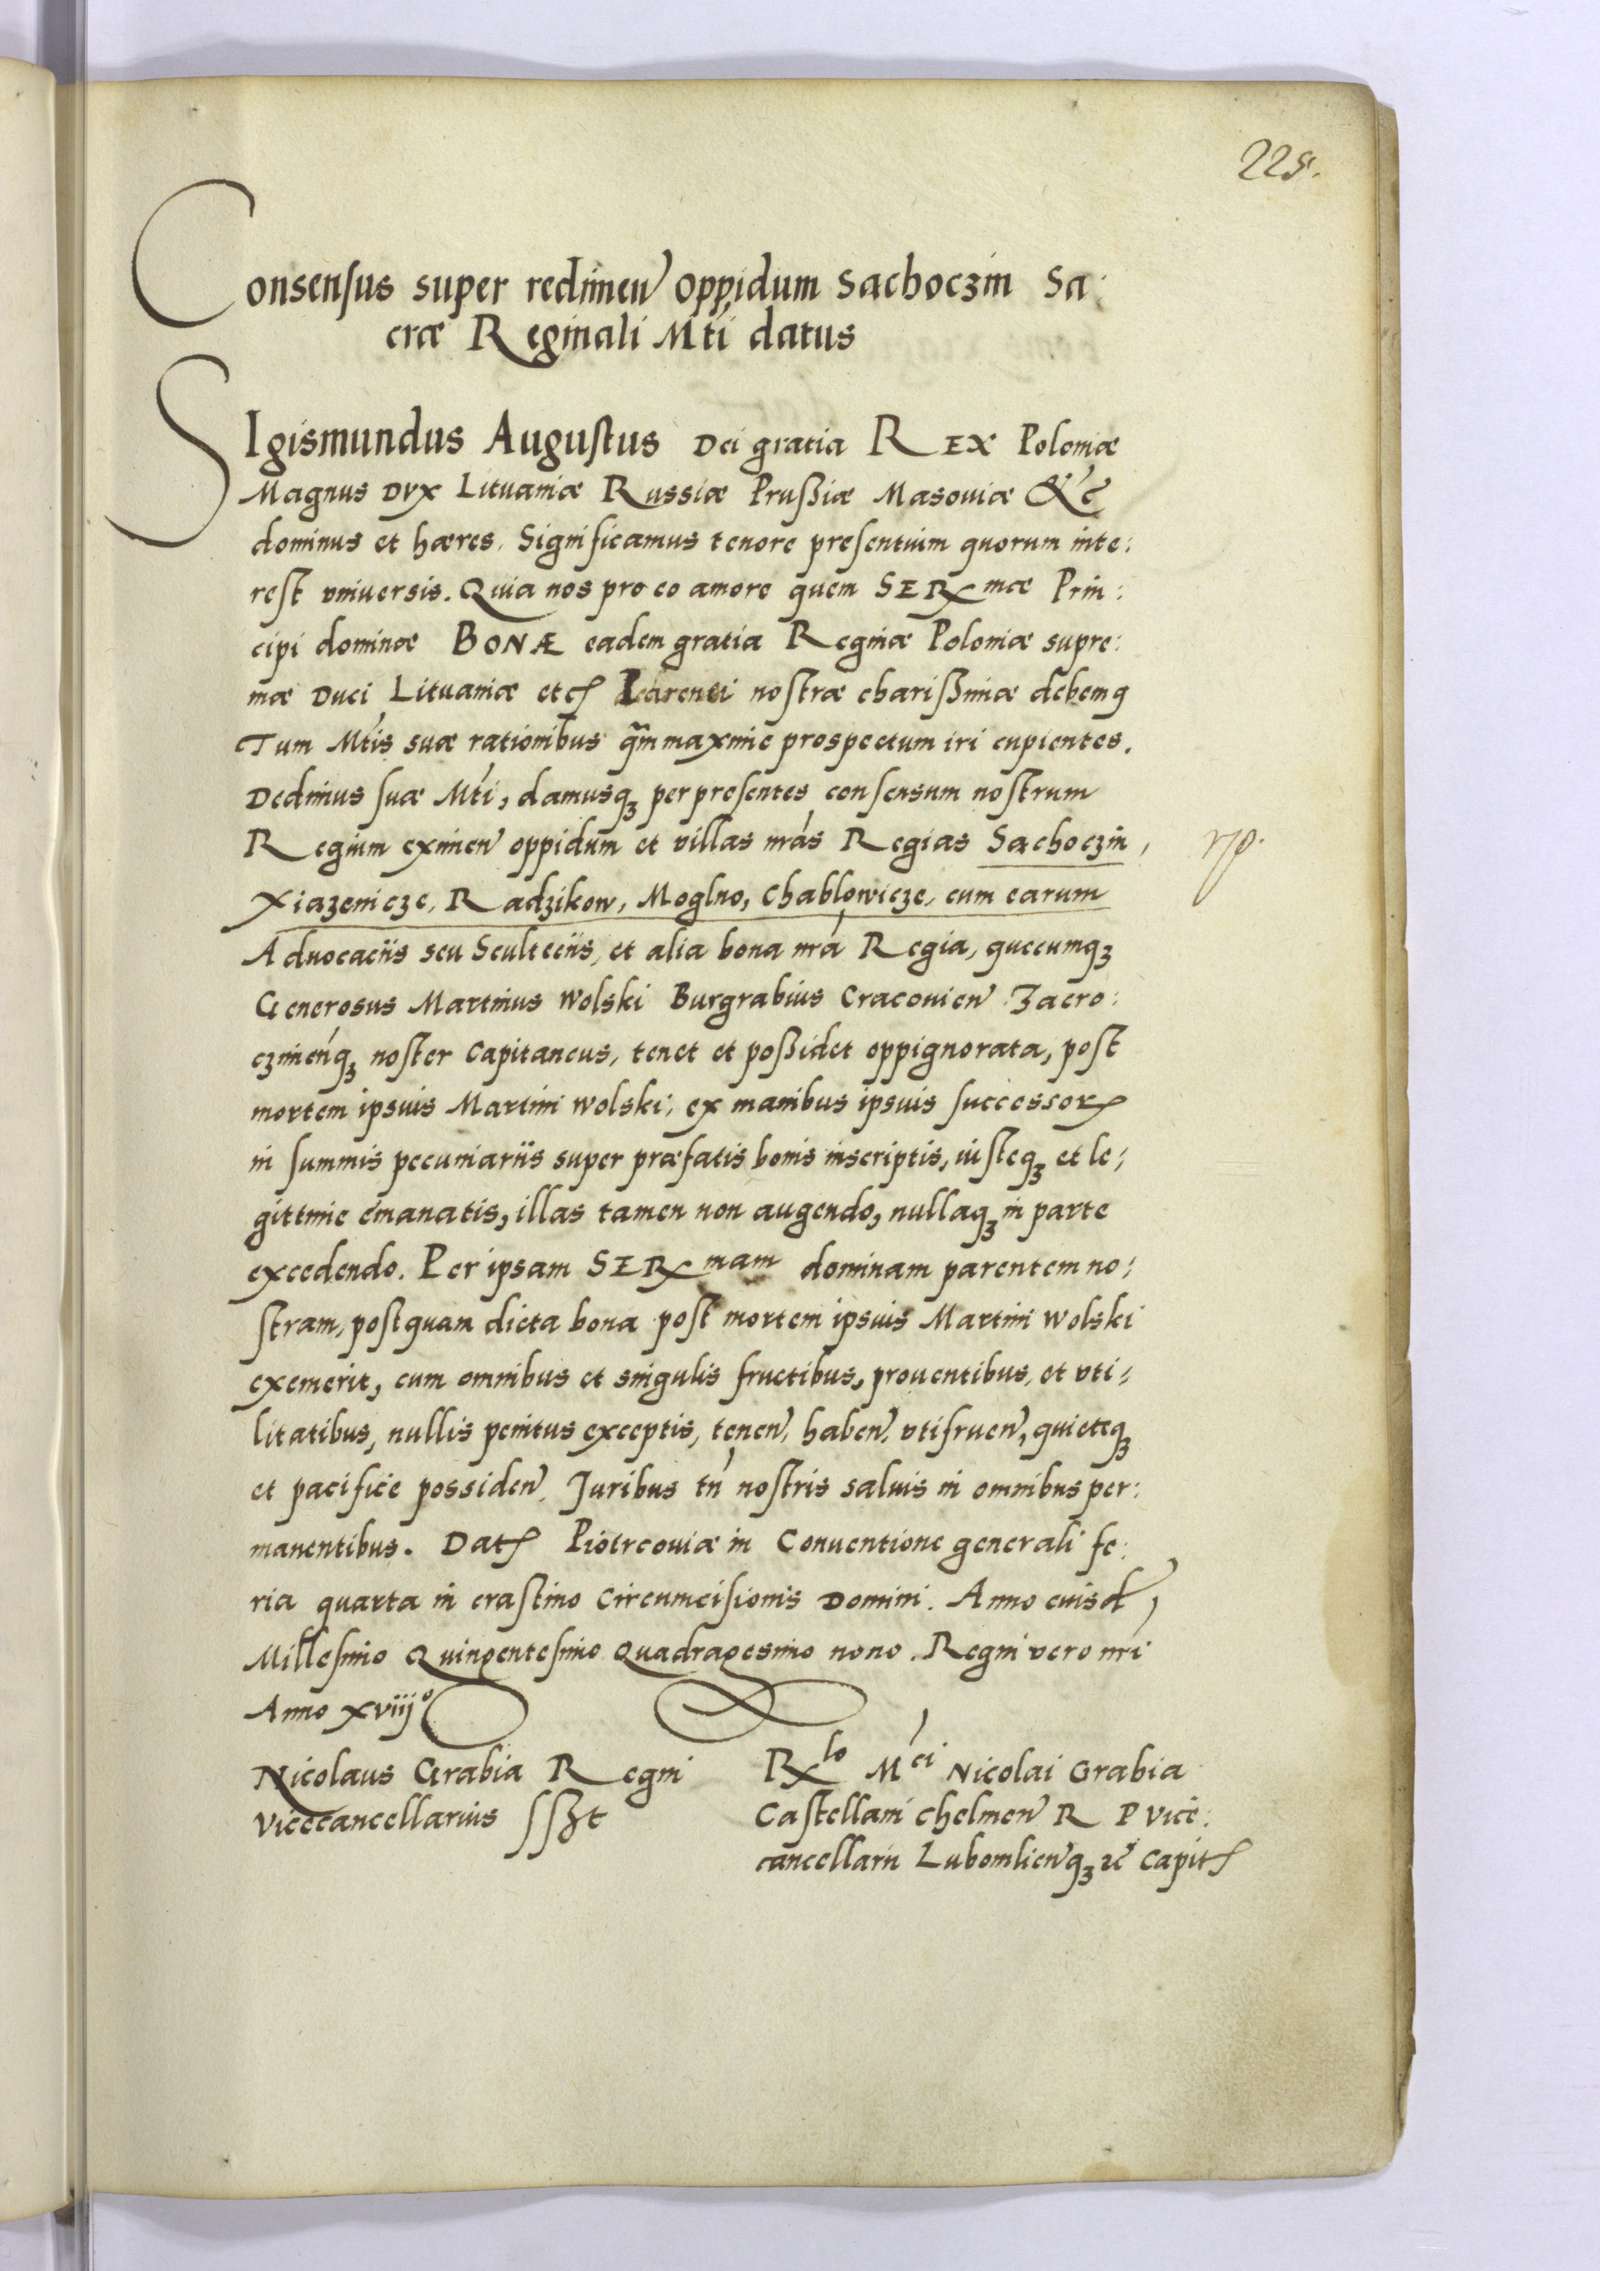 225.
Consensus super redimen̄ oppidum Sachoczin Sa:
cræ Reginali Mti datus
SIgismundus Augustus Dei gratia REX Poloniæ
Magnus Dvx Lituaniæ Russiæ Prußiæ Masouiæ &c̄
dominus et hæres. Significamus tenore presentium quorum inte:
rest vniuersis. Quia nos pro eo amore quem SERmæ Prin:
cipi dominæ BONÆ eadem gratia Reginæ Poloniæ supre:
mæ Duci Lituaniæ etc Parenti nostræ charißimæ debemꝯ
Tum Mtis suæ rationibus q̃m maxime prospectum iri cupientes.
Dedimus suæ Mti, damusqꝫ per presentes consensum nostrum
Regium eximen̄ oppidum et villas nrás Regias Sachoczin,
Xiazenicze, Radzikow, Moglno, Chablowicze, cum earum
Aduocaciis seu Sculteciis, et alia bona nrá Regia, quecumqꝫ
Generosus Martinus Wolski Burgrabius Cracouien̄ Zacro:
czimen̄qꝫ noster Capitaneus, tenet et poßidet oppignorata, post
mortem ipsius Martini Wolski; ex manibus ipsius successorꝝ
in summis pecuniariis super præfatis bonis inscriptis, iusteqꝫ et le:
gittime emanatis, illas tamen non augendo, nullaqꝫ in parte
excedendo. Per ipsam SERmam dominam parentem no:
stram, postquam dicta bona post mortem ipsius Martini Wolski
exemerit, cum omnibus et singulis fructibus, prouentibus, et vti:
litatibus, nullis penitus exceptis, tenen̄, haben̄, vtifruen̄, quieteqꝫ
et pacifice possiden̄. Juribus tn̄ nostris saluis in omnibus per:
manentibus. Dat Piotrcouiæ in Conuentione generali fe:
ria quarta in crastino Circumcisionis Domini. Anno eiusd,
Millesimo Quingentesimo Quadragesimo nono. Regni vero nrí
Anno xviiij°
Nicolaus Grabia Regni
Vicecancellarius sszt
Rlo Mci Nicolai Grabia
Castellani Chelmen̄ R P Vice:
cancellarii Lubomlien̄qꝫ zc̄ Capit